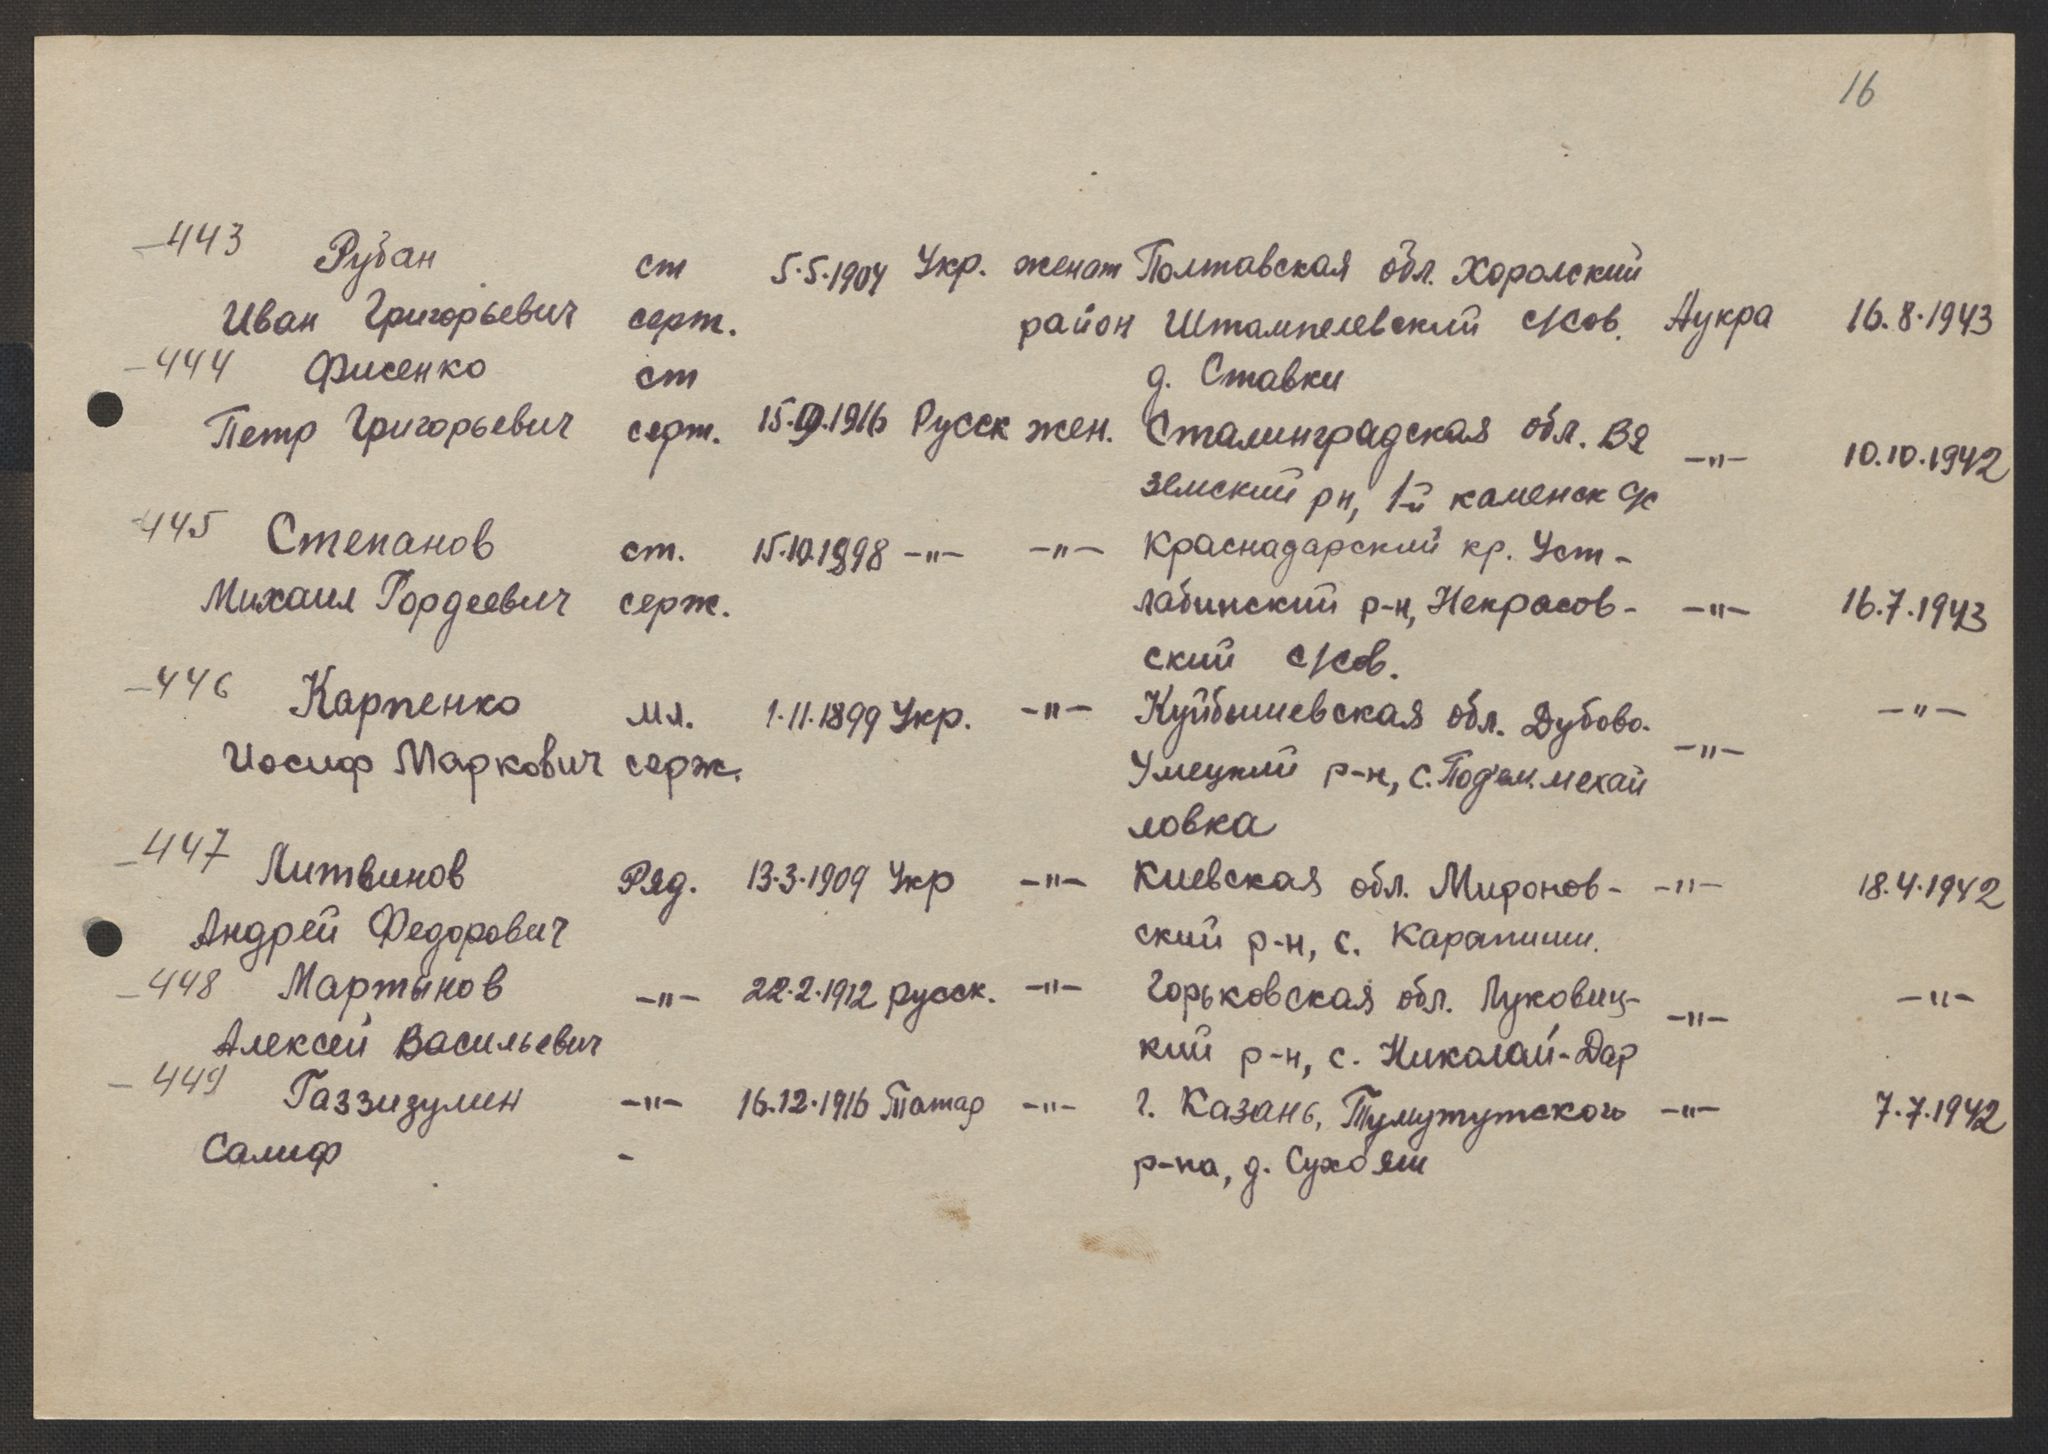 16
443 Рубан ст 5.5.1904 Укр. женат Полтавская обл. Хоролский
Иван Григорьевич серж. район Штампелевский с/сов. Аукра 16.8.1943
444 Фисенко ст д. Ставки
Петр Григорьевич серж. 15.9.1916 Русск жен. Сталинградская обл. Вя -"- 10.10.1942
земский рн, 1-й каменск с/с
445 Степанов ст. 15.10.1898 -"- -"- Краснадарский кр. Уст-
Михаил Гордеевич серж. лабинский р-н, Некрасов- -"- 16.7.1943
ский с/сов.
446 Карпенко мл. 1.11.1899 Укр. -"- Куйбышевская обл. Дубово- -"-
Иосиф Маркович серж. Умецкий р-н, с. Под'ем. мехай -"-
ловка
447 Литвинов Ряд. 13.3.1909 Укр -"- Киевская обл. Миронов- -"- 18.4.1942
Андрей Федорович ский р-н, с. Карапиши.
448 Мартынов -"- 22.2.1912 русск. -"- Горьковская обл. Луковиц- -"- -"-
Алексей Васильевич кий р-н, с. Николай-Дар
449 Газзизулин -"- 16.12.1916 Татар -"- г. Казань, Тумутутского -"- 7.7.1942
Салиф - р-на, д. Сухояш